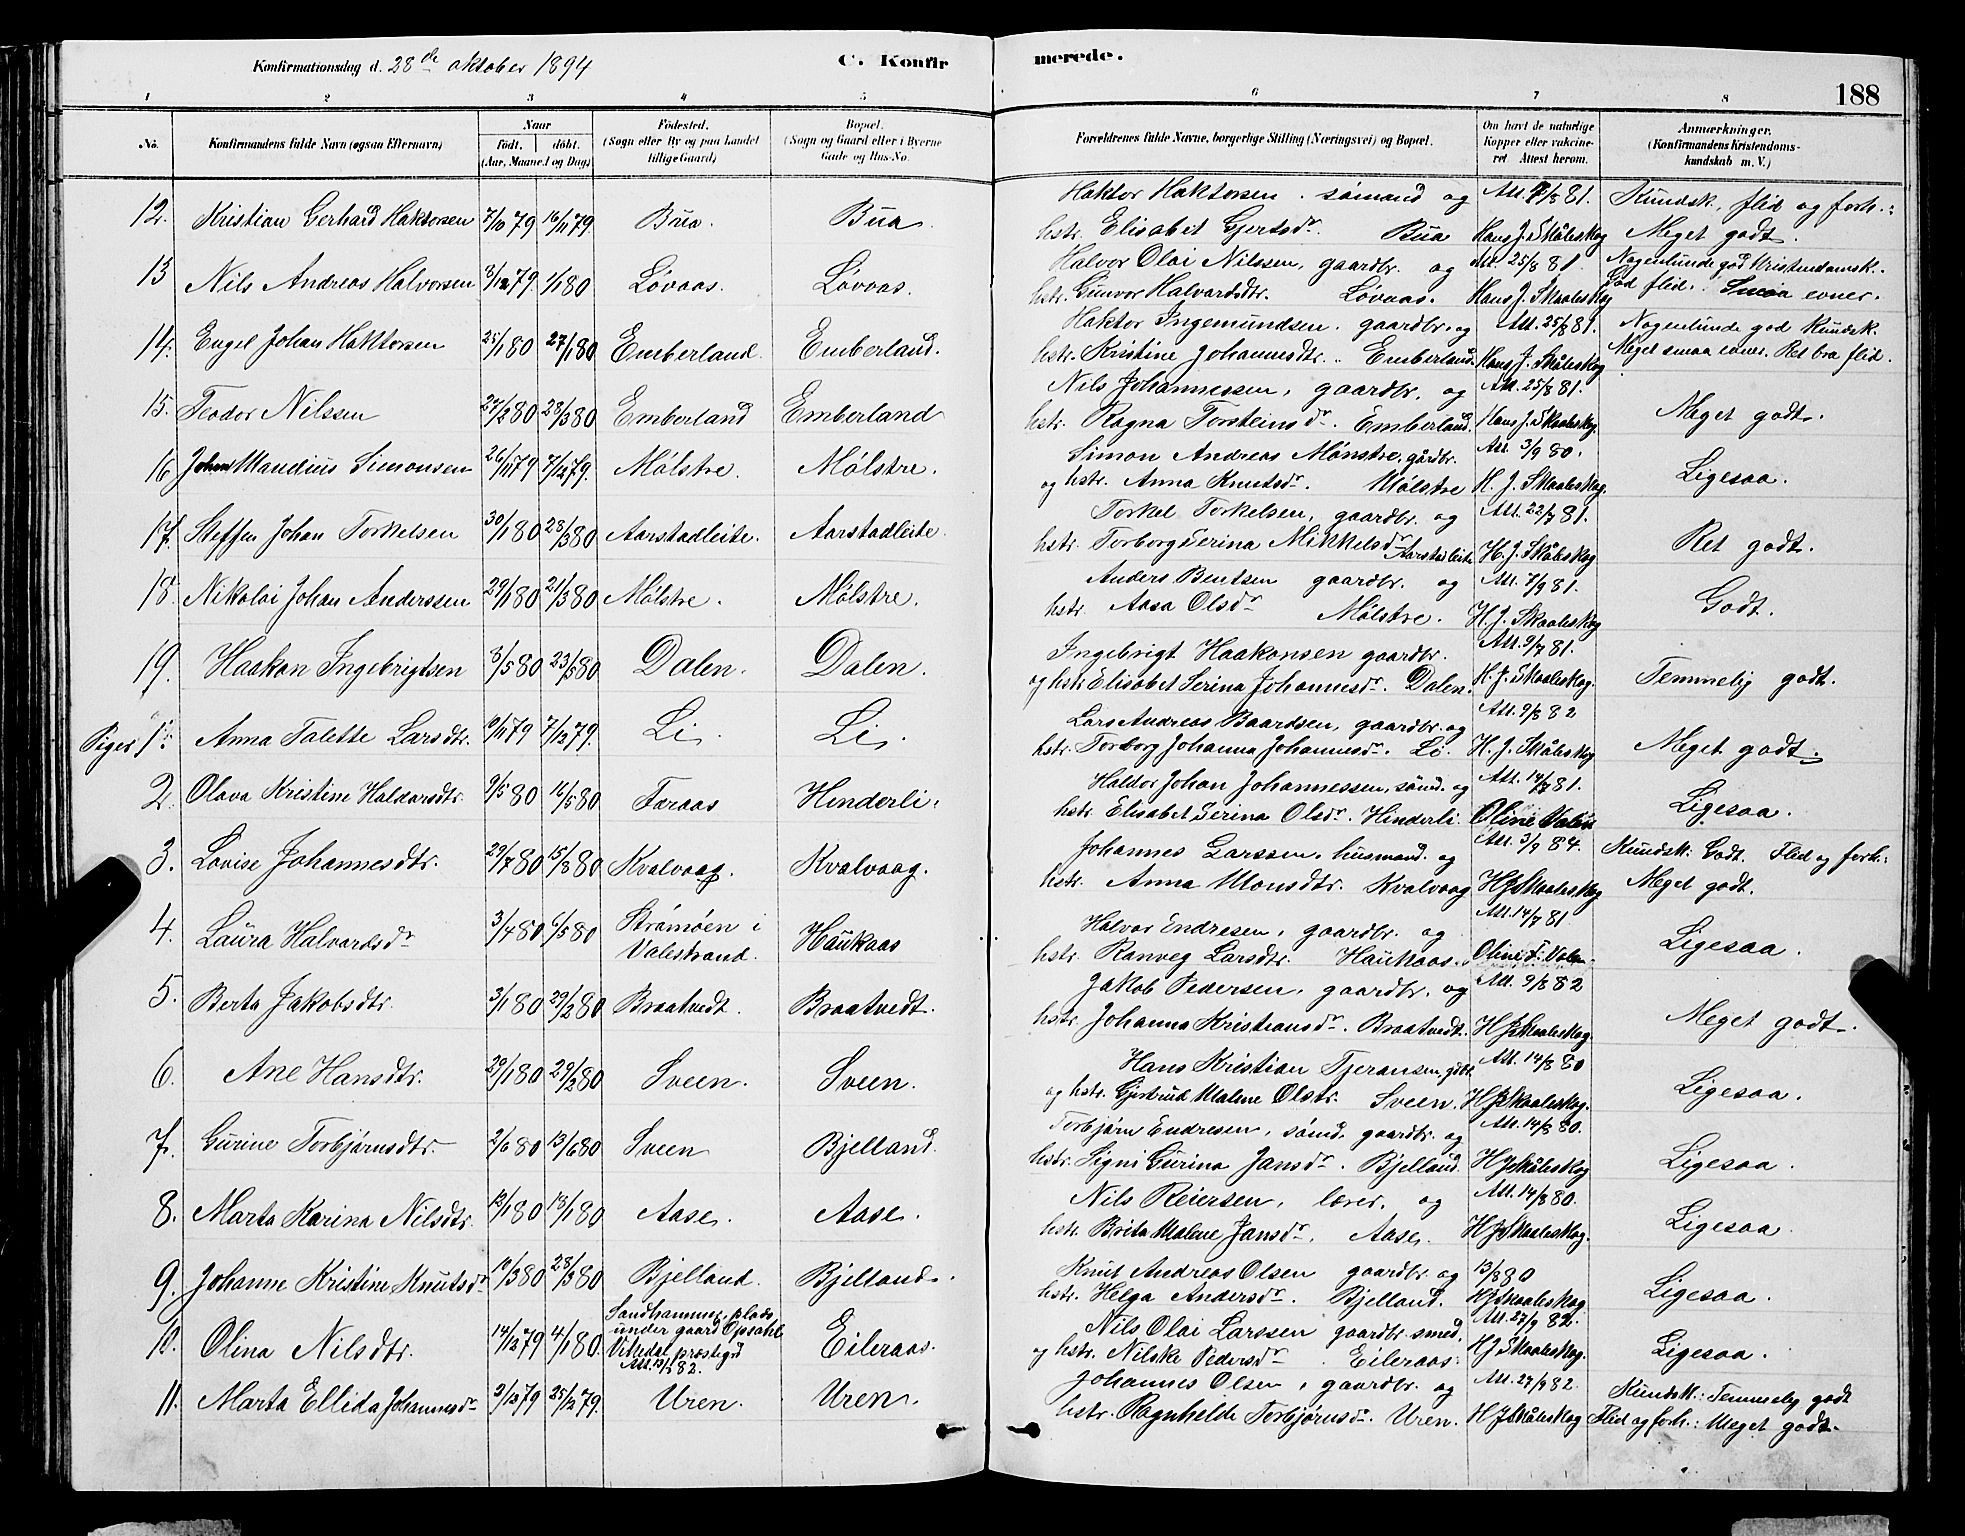 Konfirmationsdag d. 28de oktober 1894
C. Konfirmerede.
188
1 2 3 4 5 6 7 8
No.
Konfirmandens fulde Navn (ogsaa Efternavn)
Naar
født. døbt.
(Aar, Maaned og Dag)
Fødested.
(Sogn eller By og paa Landet tillige Gaard)
Bopæl.
(Sogn og Gaard eller i Byerne Gade og Hus-No.
Forældrenes fulde Navne, borgerlige Stilling (Næringsvei) og Bopæl.
Om havt de naturlige Kopper eller vakcineret Attest herom.
Anmærkninger.
(Konfirmandens Kristendomskundskab m. V.)
12. Kristian Gerhard Haktorsen 7/10 79 16/11 79 Bua. Bua. Haktor Haktorsen. sømand og Att. 7/8 81. Kundsk., flid og forh.:
hstr. Elisabet Gjertsdr. Bua Hans J. Skåleskog Meget godt.
13 Nils Andreas Halvorsen 8/12 79 1/1 80 Løvaas. Løvaas. Halvor Olai Nilssen, gaardbr. og Att. 25/8 81. Nogenlunde god Kristendomsk.
hstr. Gunvor Halvardsdtr. Løvaas. Hans J. Skaaleskog God flid. Smaa evner.
14. Engel Johan Haktorsen 25/1 80 27/1 80 Emberland. Emberland. Haktor Ingemundsen. gaardbr. og Att. 25/8 81. Nogenlunde god Kundsk.
hstr. Kristine Johannesdtr. Emberland. Hans J. Skåleskog Meget smaa evner. Ret bra flid.
15. Teodor Nilssen 27/2 80 28/3 80 Emberland Emberland Nils Johannessen, gaardbr. og Att. 25/8 81.
hstr. Ragna Torsteinsdr. Emberland. Hans J. Skaaleskog. Meget godt.
16 Johan Mandius Simonsen 26/11 79 7/12 79. Mølstre. Mølstre. Simon Andreas Mønstre, gårdbr. Att. 3/9 80.
og hstr. Anna Knutsdr. Mølstre H. J. Skaaleskog. Ligesaa.
17. Steffen Johan Torkelsen 30/1 80 28/3 80 Aarstadleite. Aarstadleite. Torkel Torkelsen, gaardbr. og Att. 22/7 81.
hstr. Torborg Serina Mikkelsdr. Aarstadleite H. J. Skåleskog Ret godt.
18. Nikolai Johan Anderssen 29/1 80 21/3 80 Mølstre. Mølstre. Anders Bentsen gaardbr. og Att. 7/9 81.
hstr. Aasa Olsdr Mølstre. H. J. Skaaleskog Godt.
19. Haakon Ingebrigtsen 8/5 80 23/5 80 Dalen. Dalen. Ingebrigt Haakonsen gaardbr. Att. 9/7 81.
og hstr. Elisabet Serina Johannesdr. Dalen. H. J. Skaaleskog. Temmelig godt.
Piger 1. Anna Talette Larsdtr. 9/11 79 7/12 79. Li. Li. Lars Andreas Baardsen, gaardbr. og Att. 9/8 82
hstr. Torborg Johanna Johannesdr. Li. H. J. Skåleskog Meget godt.
2. Olava Kristine Haldorsdtr. 9/5 80 16/5 80 Faraas Hinderli. Haldor Johan Johannessen, sømd. og Att. 14/7 81.
hstr. Elisabet Serina Olsdr. Hinderli. Oline Valen Ligesaa.
3. Lovise Johannesdtr. 29/7 80 15/8 80 Kvalvaag. Kvalvaag. Johannes Larssen. husmand. og Att. 3/9 84. Kundsk: Godt. Flid og forh.:
hstr. Anna Monsdtr. Kvalvaag H J Skaaleskog Meget godt.
4. Laura Halvardsdr 3/4 80 6/5 80 Strømøen i Valestrand. Haukaas Halvor Endresen, gaardbr. og Att. 14/7 81
hstr. Ranveg Larsdtr. Haukaas. Oline d: Valen. Ligesaa.
5. Berta Jakobsdtr. 3/1 80 29/2 80 Braatvedt. Braatvedt. Jakob Pedersen. gaardbr. og Att. 9/8 82
hstr. Johanna Kristiansdr. Braatvedt. H J Skaaleskog. Meget godt.
6. Ane Hansdtr. 29/1 80 29/2 80 Sveen. Sveen. Hans Kristian Tjeransen, gdbr. Att. 14/8 80
og hstr. Gjertrud Malene Olsdtr. Sveen. H J Skaaleskog. Ligesaa.
7. Gurine Torbjørnsdtr. 2/6 80 13/6 80 Sveen Bjelland. Torbjørn Endresen, sømd. gaardbr. og Att. 14/8 80.
hstr. Signi Gurina Jansdr. Bjelland. H J Skåleskog Ligesaa.
8. Marta Karina Nilsdtr. 13/1 80 18/1 80 Aase. Aase. Nils Reiersen, lærer. og Att. 14/8 80.
hstr. Brita Malene Jansdr. Aase. H J Skaaleskog. Ligesaa.
9. Johanne Kristine Knutsdr 10/3 80 28/3 80 Bjelland. Bjelland. Knut Andreas Olsen gaardbr. og 13/8 80
hstr. Helga Andersdr. Bjelland. H J Skaaleskog. Ligesaa.
10. Olina Nilsdtr. 14/12 79 4/1 80. Sandhammer, plads under gaard Opsahl Vikedal prestegd Att. 19/3 82. Eileraas. Nils Olai Larssen gaardbr. smed. Att. 27/9 82.
og hstr. Nilske Pedersdr. Eileraas. H J Skaaleskog. Ligesaa.
11. Marta Ellida Johannesdr 2/12 79 25/12 79. Uren. Uren. Johannes Olsen, gaardbr. og Att. 27/9 82. Kundsk.: Temmelig godt
hstr. Ragnhelde Torbjørnsdr. Uren. H J Skåleskog Flid og forh.: Meget godt.